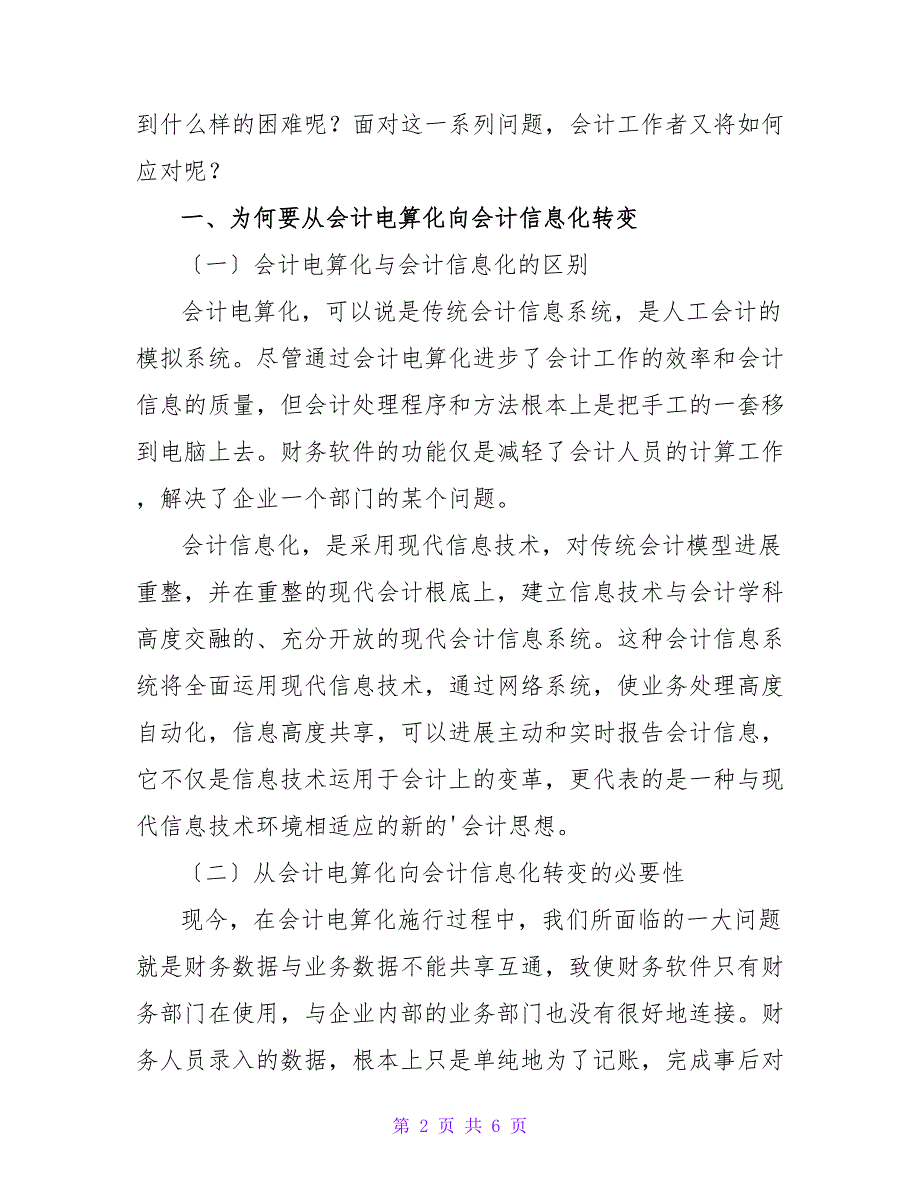 到什么样的困难呢？面对这一系列问题，会计工作者又将如何
应对呢？
一、为何要从会计电算化向会计信息化转变
〔一〕会计电算化与会计信息化的区别
会计电算化，可以说是传统会计信息系统，是人工会计的
模拟系统。尽管通过会计电算化进步了会计工作的效率和会计
信息的质量，但会计处理程序和方法根本上是把手工的一套移
到电脑上去。财务软件的功能仅是减轻了会计人员的计算工作
，解决了企业一个部门的某个问题。
会计信息化，是采用现代信息技术，对传统会计模型进展
重整，并在重整的现代会计根底上，建立信息技术与会计学科
高度交融的、充分开放的现代会计信息系统。这种会计信息系
统将全面运用现代信息技术，通过网络系统，使业务处理高度
自动化，信息高度共享，可以进展主动和实时报告会计信息，
它不仅是信息技术运用于会计上的变革，更代表的是一种与现
代信息技术环境相适应的新的'会计思想。
〔二〕从会计电算化向会计信息化转变的必要性
现今，在会计电算化施行过程中，我们所面临的一大问题
就是财务数据与业务数据不能共享互通，致使财务软件只有财
务部门在使用，与企业内部的业务部门也没有很好地连接。财
务人员录入的数据，根本上只是单纯地为了记账，完成事后对
第 2 页 共 6 页